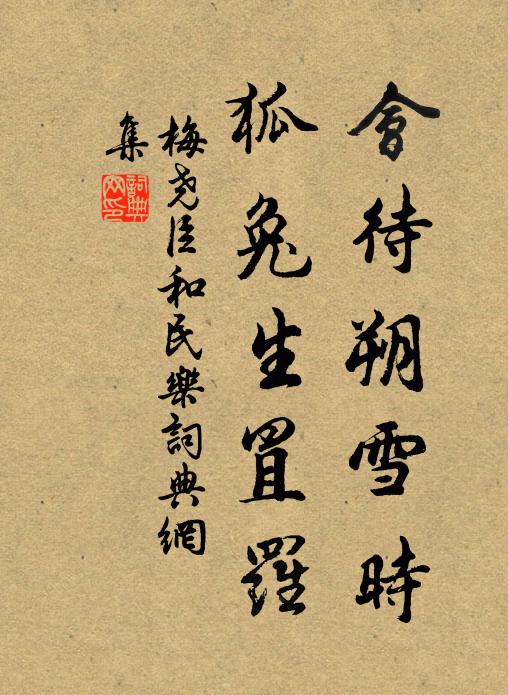 會待朔雪時
狐兔生罝羅
梅堯臣和民樂詞典網
集
詞典
網印